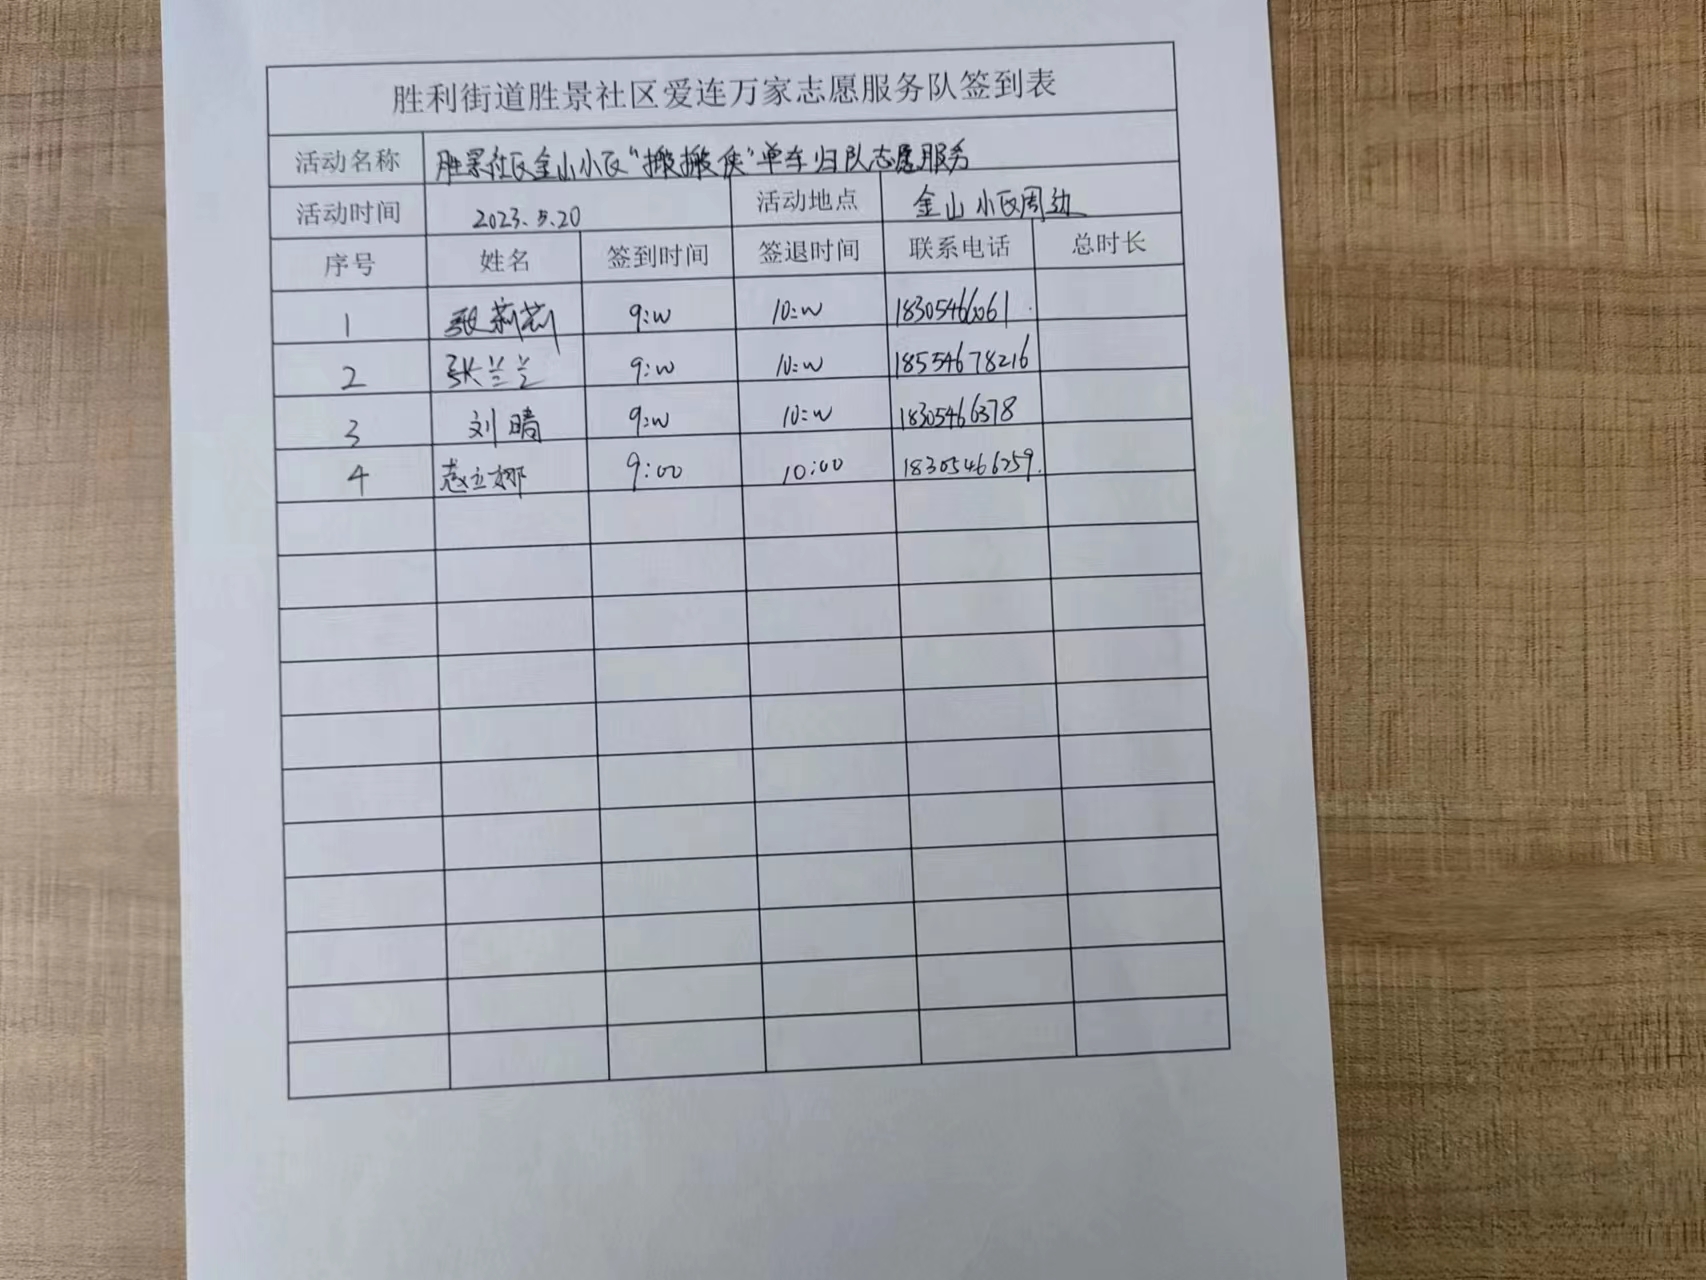 胜利街道胜景社区爱连万家志愿服务队签到表
活动名称 胜景社区金山小区“搬搬侠”单车归队志愿服务
活动时间 2023.5.20 活动地点 金山小区周边
序号 姓名 签到时间 签退时间 联系电话 总时长
1 张莉莉 9:00 10:00 18305466061
2 张兰兰 9:00 10:00 18554678216
3 刘晴 9:00 10:00 18305466378
4 赵立娜 9:00 10:00 18305466259